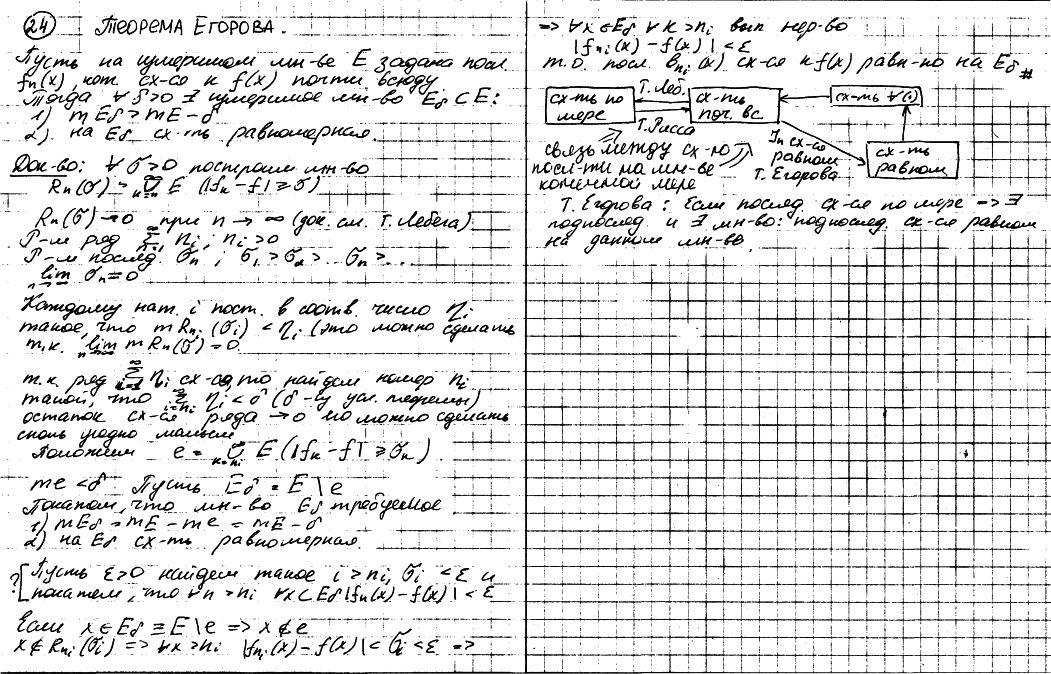 24 ТЕОРЕМА ЕГОРОВА.
Пусть на измеримом мн-ве E задана посл.
fₙ(x), кот. сх-ся к f(x) почти всюду
Тогда ∀ δ>0 ∃ измеримое мн-во E_δ ⊂ E:
1) mE_δ > mE − δ
2) на E_δ сх-ть равномерная.
Док-во: ∀ σ>0 построим мн-во
Rₙ(σ) = ∪_{k=n}^∞ E (|f_k − f| ≥ σ)
Rₙ(σ) → 0 при n → ∞ (док. см. Т. Лебега)
Р-м ряд ∑ ηᵢ; ηᵢ>0
Р-м послед. σₙ; σ₁ > σ₂ > ... σₙ > ...
lim σₙ = 0
Каждому нат. i пост. в соотв. число ηᵢ
такое, что mR_{nᵢ}(σᵢ) < ηᵢ (это можно сделать
т.к. lim_{n→∞} mRₙ(σ) = 0
т.к. ряд ∑ ηᵢ сх-ся, то найдем номер nᵢ
такой, что ∑_{i=nᵢ}^∞ ηᵢ < δ (δ - из усл. теоремы)
остаток сх-ся ряда → 0 его можно сделать
сколь угодно малым
Положим e = ∪_{k=nᵢ}^∞ E (|f_k − f| ≥ σₙ).
me < δ Пусть E_δ = E \ e
Покажем, что мн-во E_δ требуемое
1) mE_δ = mE − me = mE − δ
2) на E_δ сх-ть равномерная.
? [ Пусть ε>0 найдем такое i > nᵢ, σᵢ < ε и
покажем, что ∀n > nᵢ ∀x ⊂ E_δ |fₙ(x) − f(x)| < ε
Если x ∈ E_δ ≡ E \ e => x ∉ e
x ∉ R_{nᵢ}(σᵢ) => ∀x > nᵢ |f_{nᵢ}(x) − f(x)| < σᵢ < ε =>
=> ∀x ∈ E_δ ∀k > nᵢ вып нер-во
|f_{nᵢ}(x) − f(x)| < ε
т.о. посл. (x) сх-ся к f(x) равн-но на E_δ #
сх-ть по
мере
Т. Леб.
Т. Рисса
сх-ть
поч. вс.
сх-ть ∀
fₙ сх-ся
равном
Т. Егорова
сх-ть
равном
связь между сх-ю
посл-ти на мн-ве
конечной мере
Т. Егорова: Если послед. сх-ся по мере => ∃
подпослед и ∃ мн-во: подпослед. сх-ся равном
на данном мн-ве.